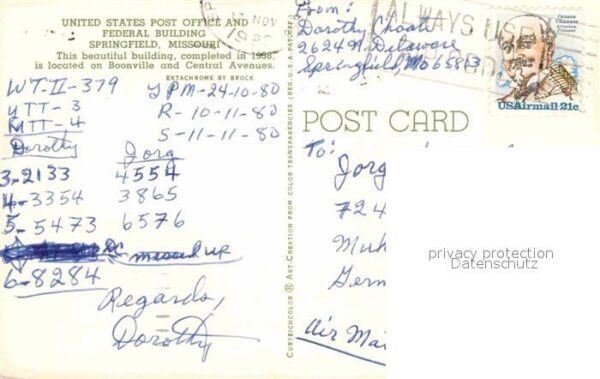 UNITED STATES POST OFFICE AND
FEDERAL BUILDING
SPRINGFIELD, MISSOURI
This beautiful building, completed in 1938,
is located on Boonville and Central Avenues.
EKTACHROME BY BROCK
WT-II-379
YTT-3
RMTT-4
PM-24-10-80
R-10-11-80
S-11-11-80
Dorothy Jorg
3-2133 4554
4-3354 3865
5-5473 6576
messed up
6-8284
Regards,
Dorothy
CURTEICHCOLOR ® ART CREATION FROM COLOR TRANSPARENCIES (REG. U.S.A. PAT. OFF.)
NOV
ALWAYS USE
From:
Dorothy Choate
2624 N. Delaware
Springfield, Mo 65803
Octave
Chanute
USAirmail 21c
POST CARD
To:
Jorg
724
Muh
Germ
Air Mai
privacy protection
Datenschutz